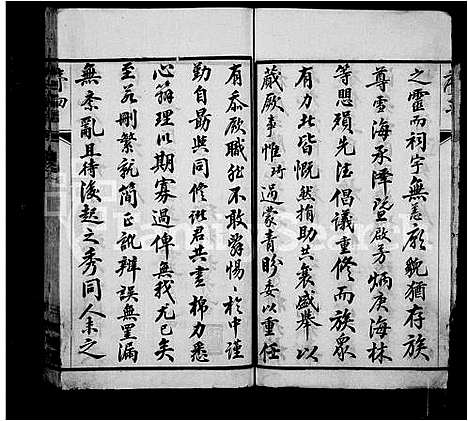 之靈而祠宇無恙廟貌猶存族
尊雪海承澤暨啟芳炳庚海林
等思頌先法倡議重修而族眾
有力此皆慨然捐助共襄盛舉以
蕆厥事惟珩過蒙青盼委以重任
有忝厥職然不敢辭惕惕於中謹
勤自勗與同修諸君共盡棉力悉
心籌理以期寡過俾無我尤已矣
至若刪繁就簡正訛辨誤無罣漏
無紊亂且待後起之秀同人未之
FamilySearch